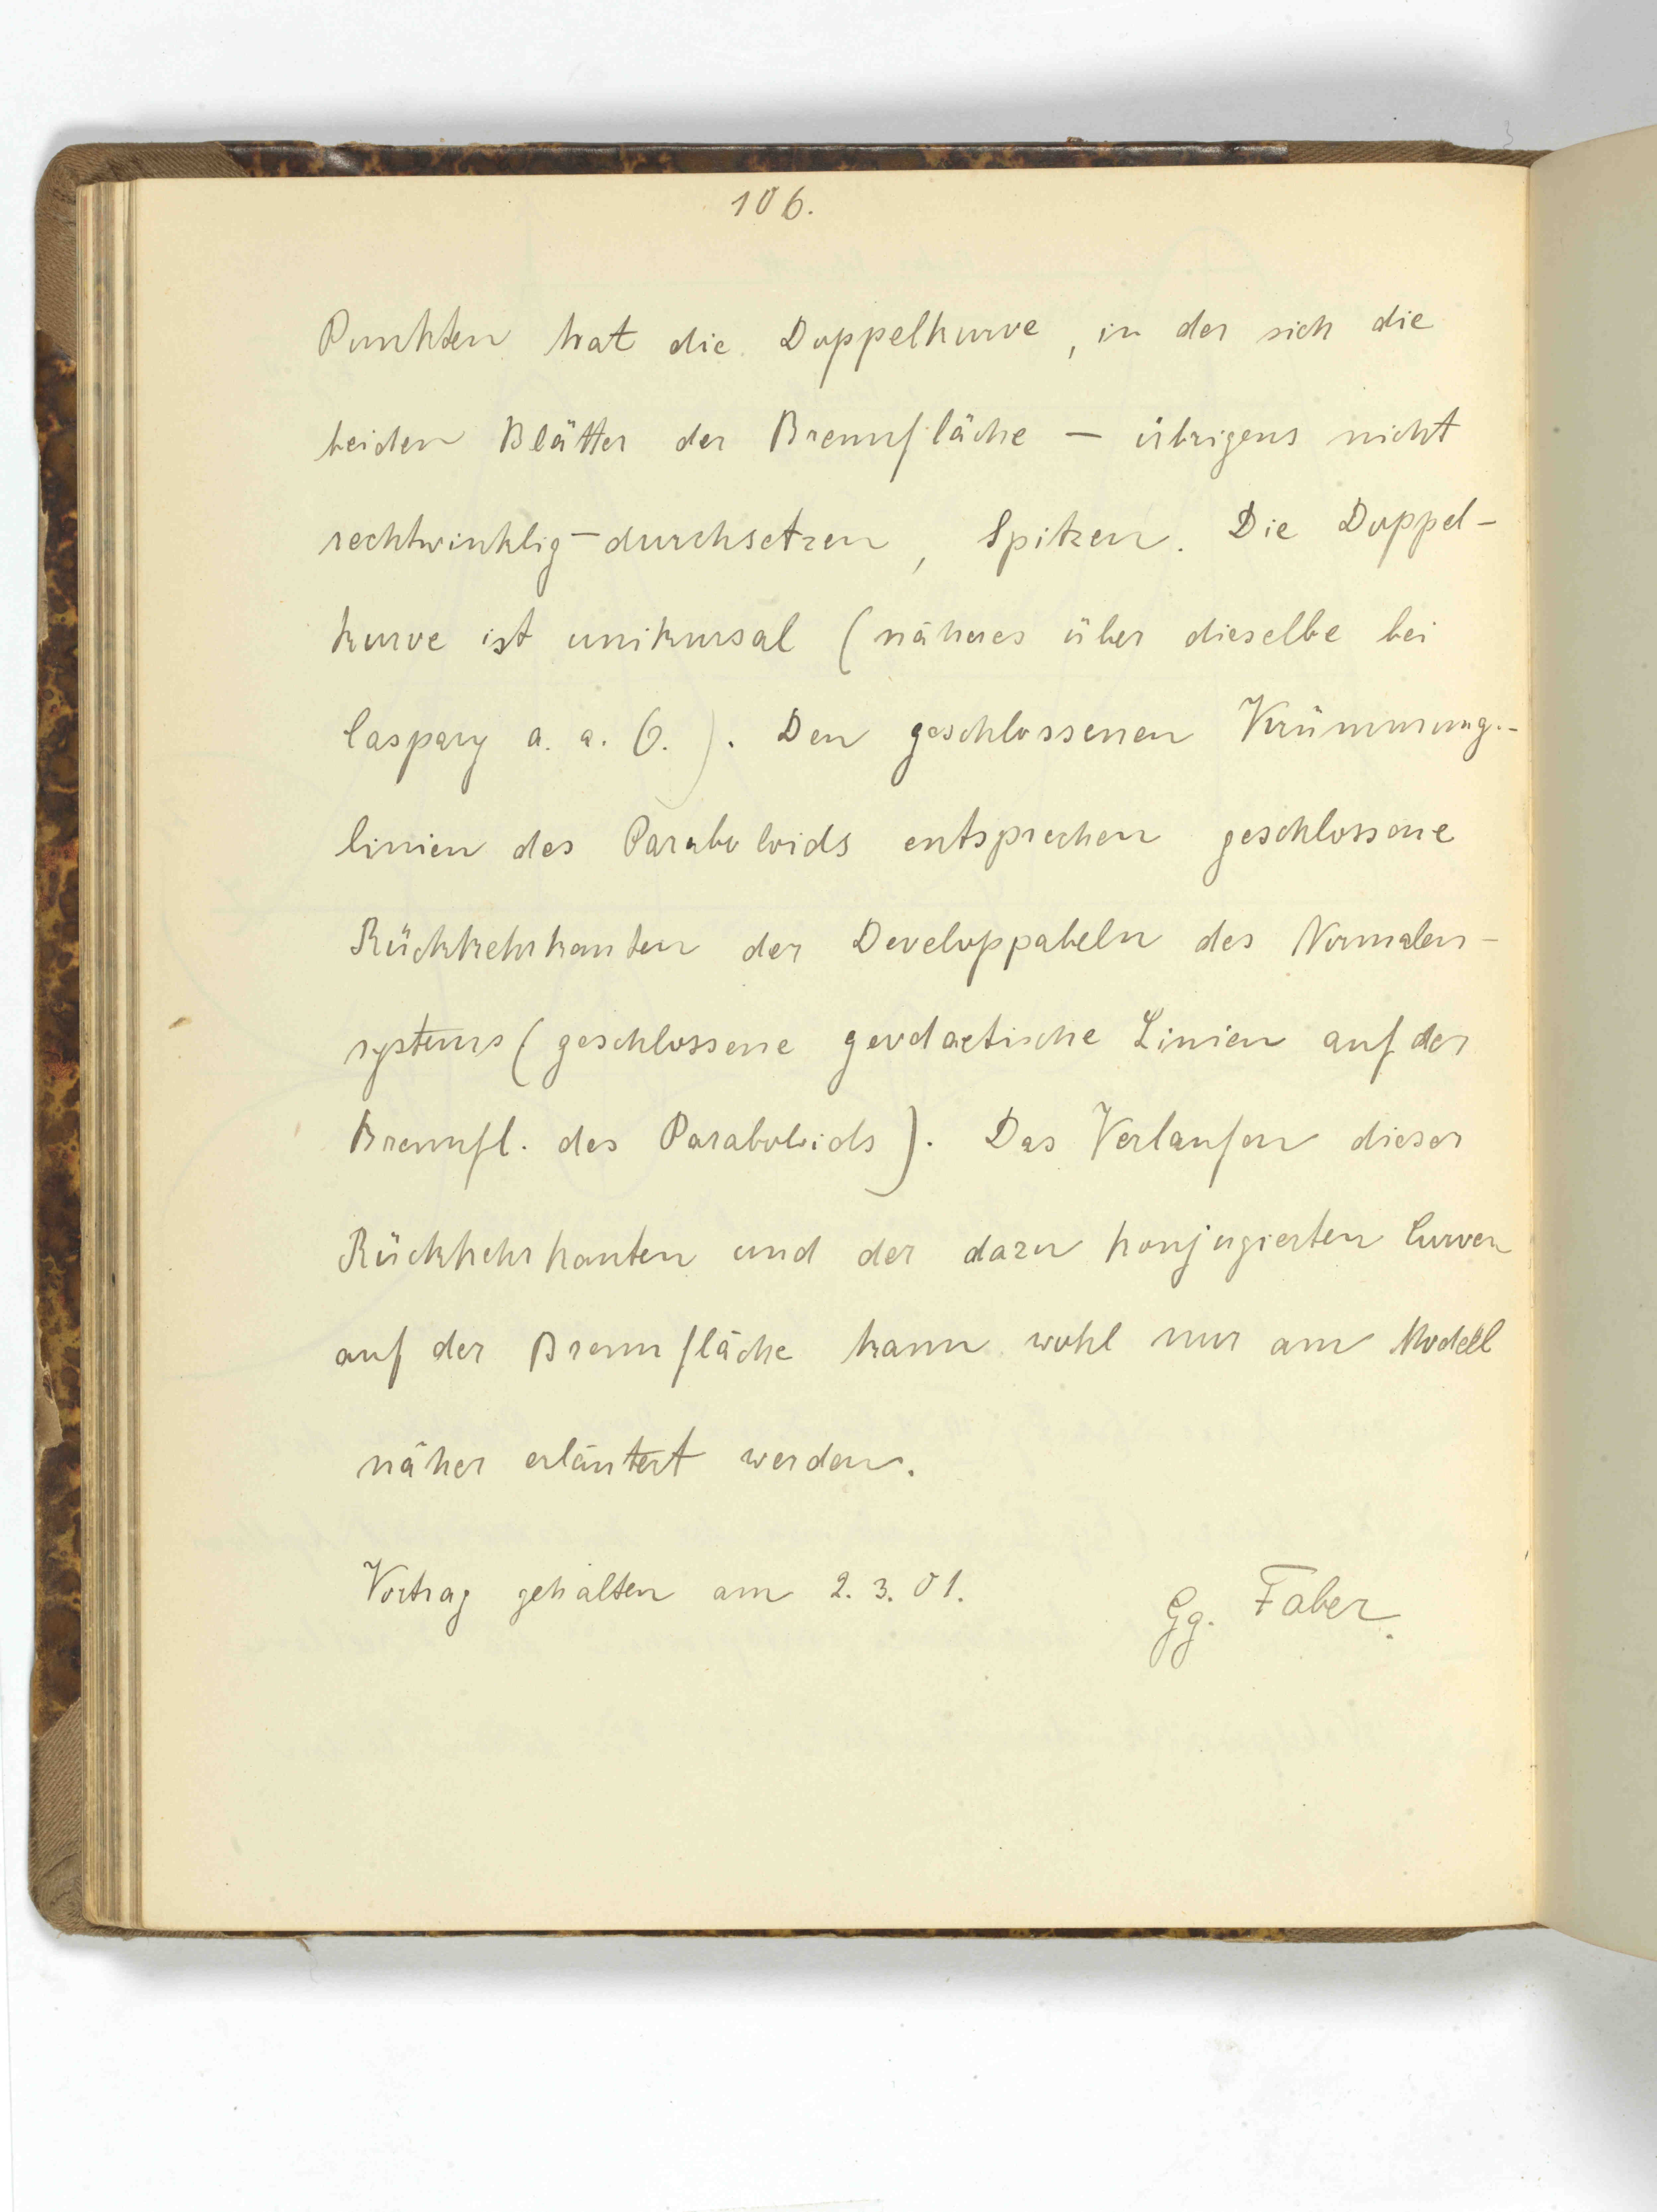 106.
Punkten hat die Doppelkurve, in der sich die
beiden Blätter der Brennfläche — übrigens nicht
rechtwinklig — durchsetzen, Spitzen. Die Doppel-
kurve ist unikursal (näheres über dieselbe bei
Caspary a. a. O.). Den geschlossenen Krümmung.-
linien des Paraboloids entsprechen geschlossene
Rückkehrkanten der Developpabeln des Normalen-
systems (geschlossene geodaetische Linien auf der
Brennfl. des Paraboloids). Das Verlaufen dieser
Rückkehrkanten und der dazu konjugierten Curven
auf der Brennfläche kann wohl nur am Modell
näher erläutert werden.
Vortrag gehalten am 2. 3. 01.
Gg. Faber.